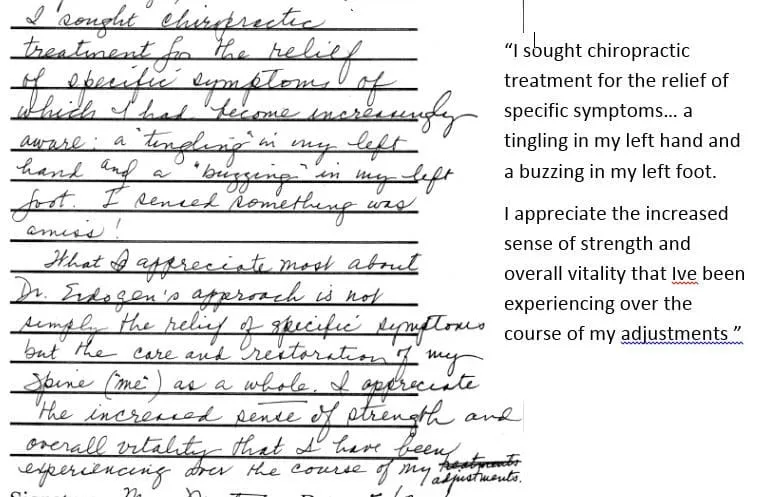 I sought chiropractic
treatment for the relief
of specific symptoms of
which I had become increasingly
aware: a "tingling" in my left
hand and a "buzzing" in my left
foot. I sensed something was
amiss!
What I appreciate most about
Dr. Erdogen's approach is not
simply the relief of specific symptoms
but the care and restoration of my
spine ("me") as a whole. I appreciate
the increased sense of strength and
overall vitality that I have been
experiencing over the course of my treatments
adjustments.
“I sought chiropractic
treatment for the relief of
specific symptoms... a
tingling in my left hand and
a buzzing in my left foot.
I appreciate the increased
sense of strength and
overall vitality that Ive been
experiencing over the
course of my adjustments ”